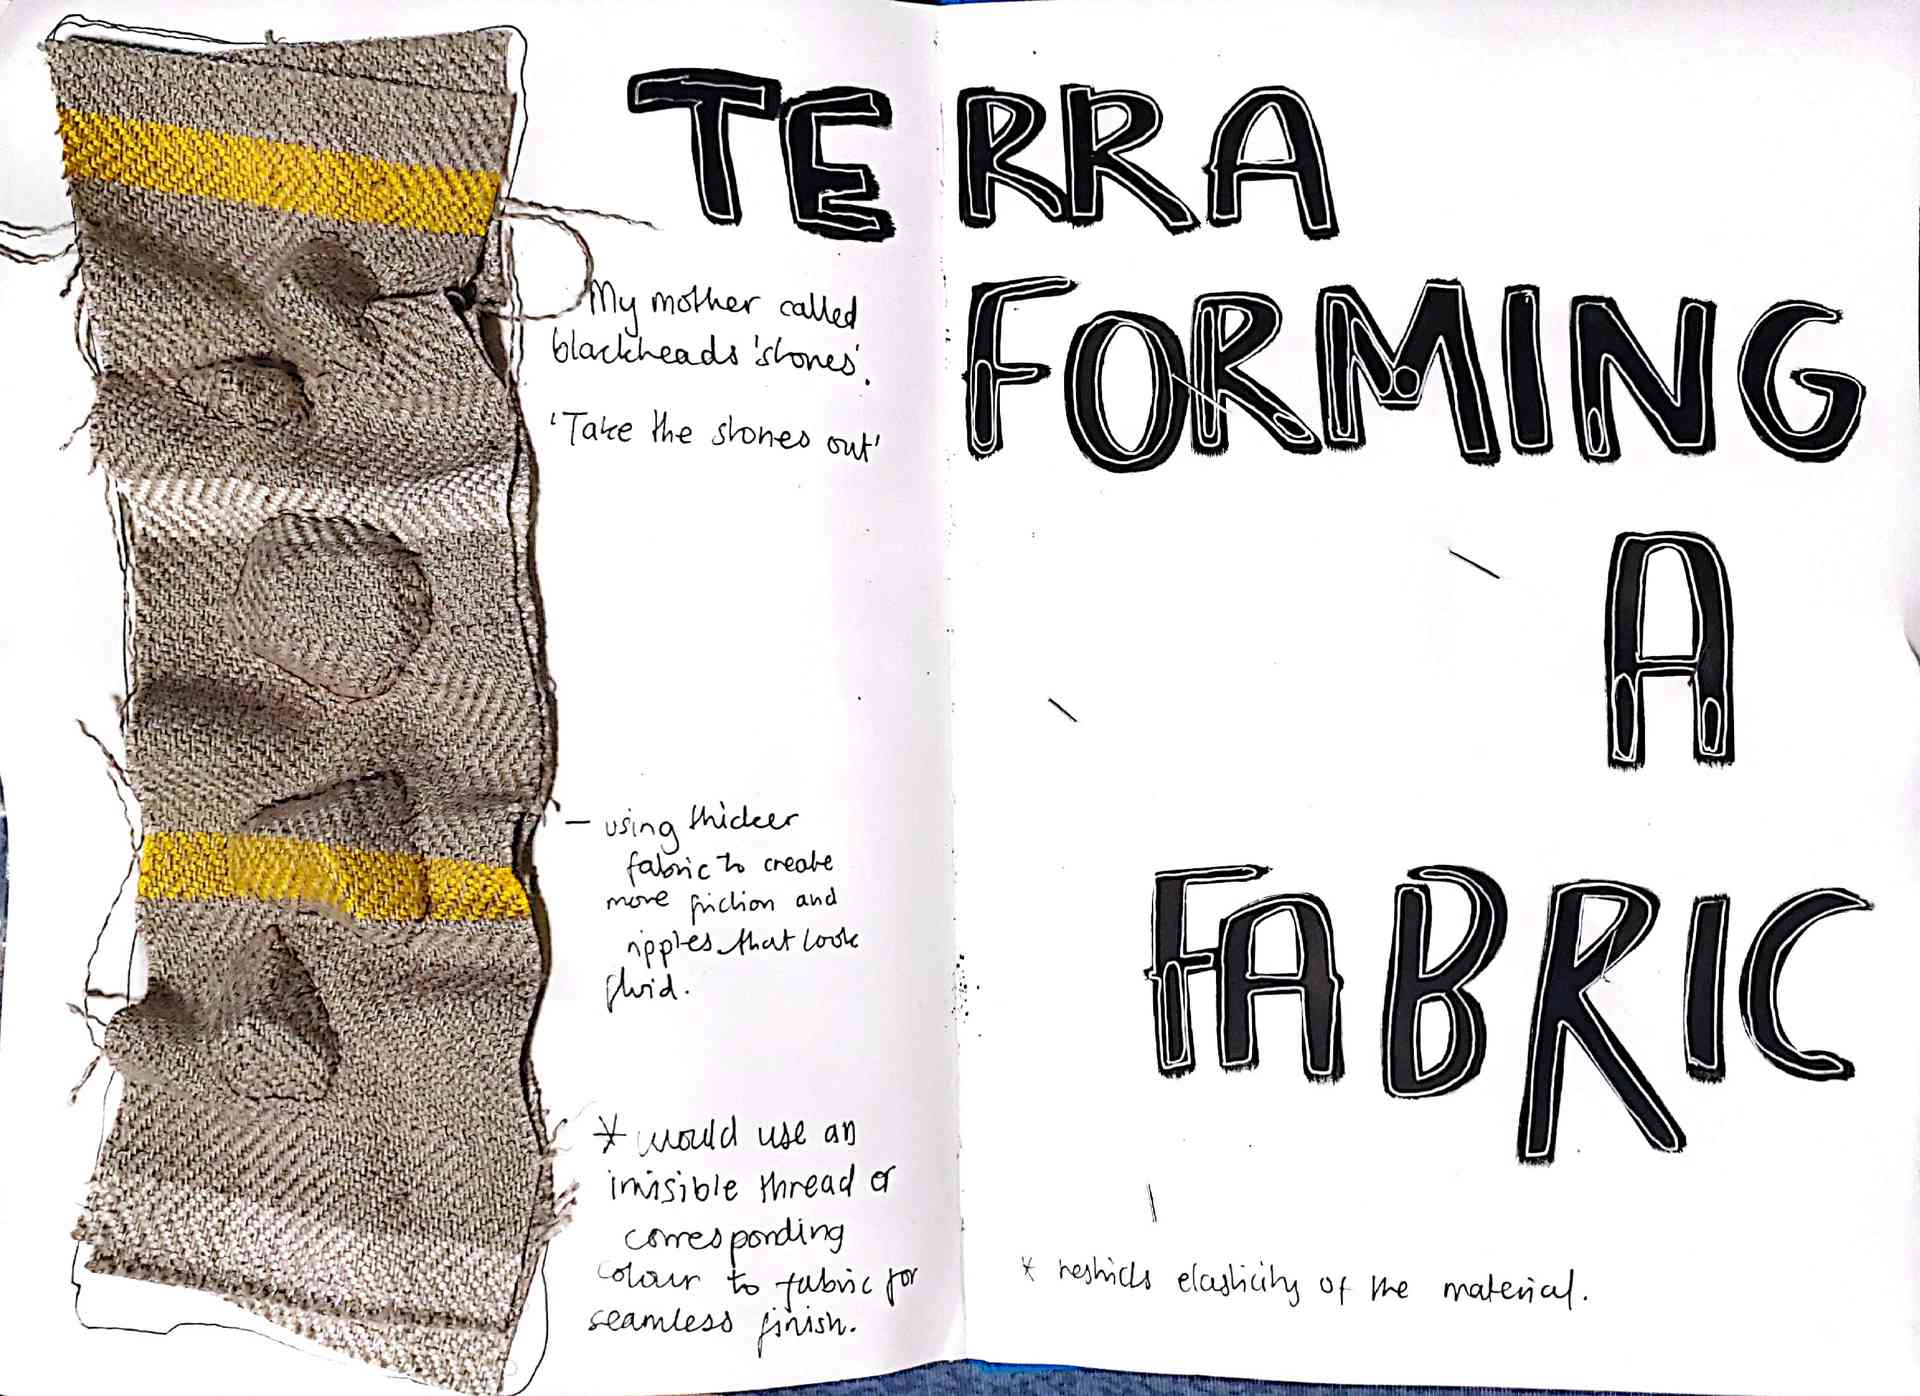 TERRA
FORMING
A
FABRIC
My mother called
blackheads 'stones'.
'Take the stones out'
– using thicker
fabric to create
more friction and
ripples that look
fluid.
* would use an
invisible thread or
corresponding
colour to fabric for
seamless finish.
* restricts elasticity of the material.